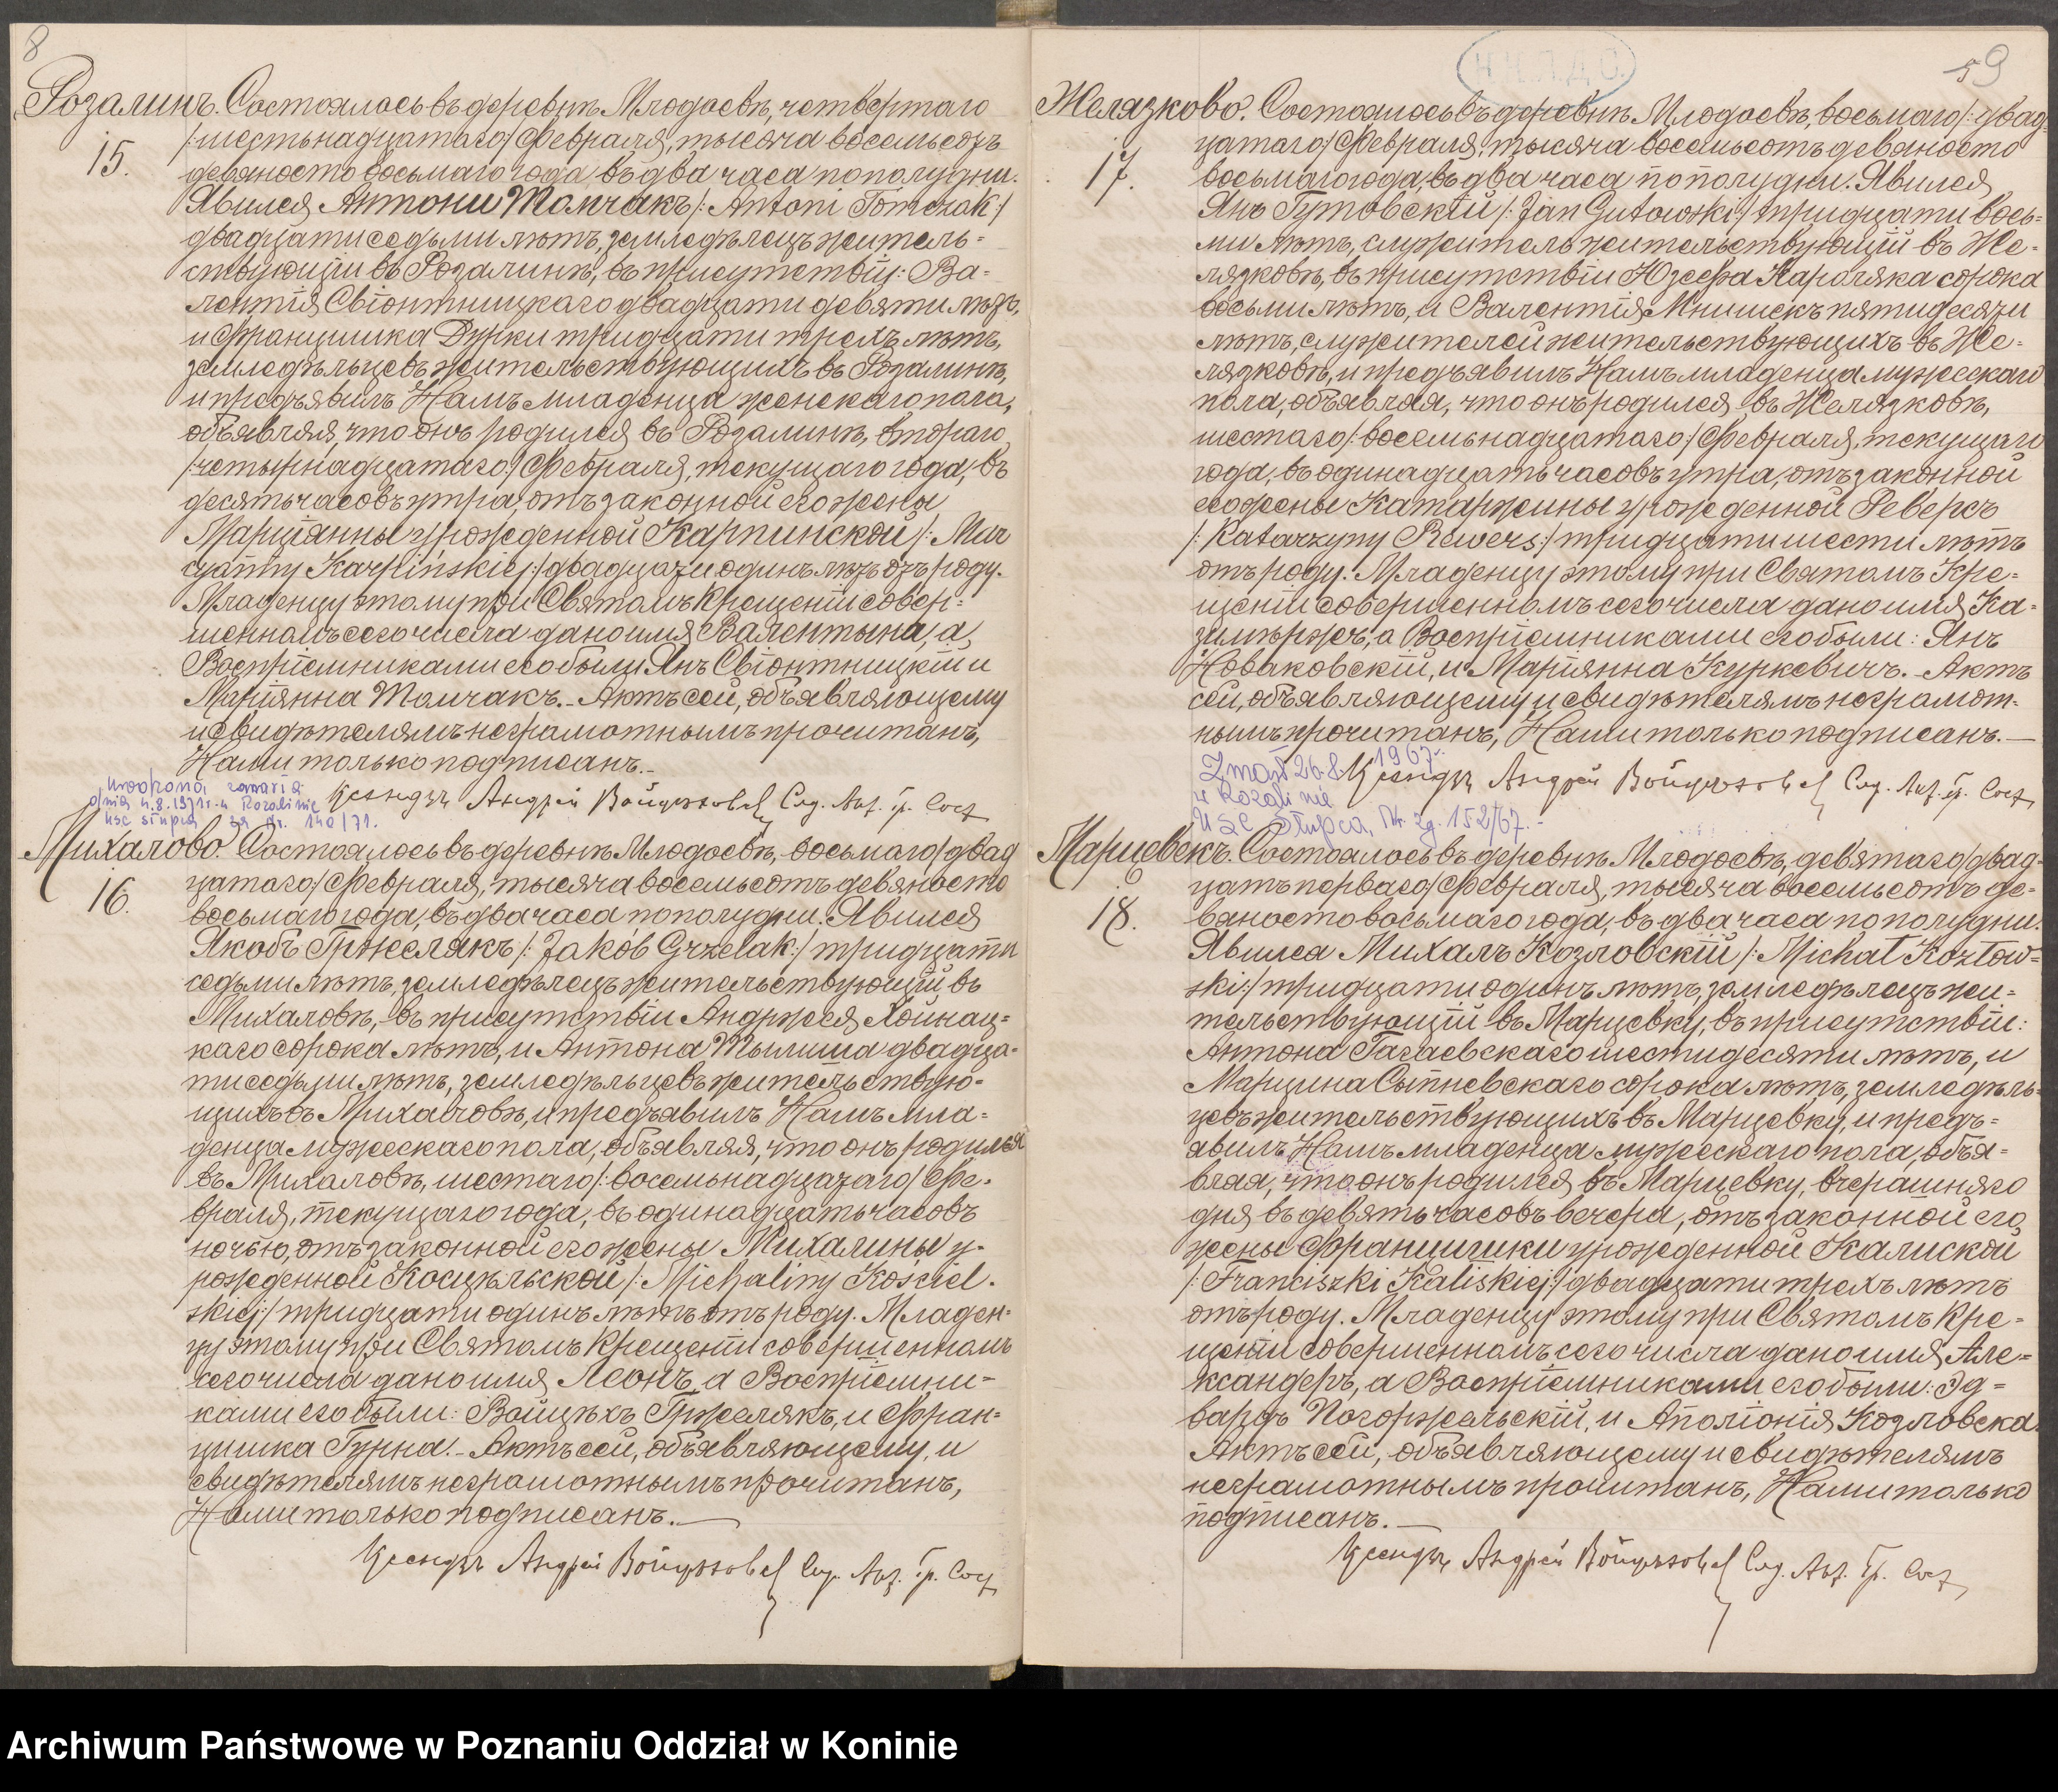 8
Розалинъ. Состоялось въ деревнѣ Млодоевѣ, четвертаго
15.
/:шестьнадцатаго:/ Февраля, тысяча восемьсотъ
девяносто восьмаго года въ два часа пополудни.
Явился Антони Томчакъ /: Antoni Tomczak :/
двадцати седьми лѣтъ, земледѣлецъ житель=
ствующій въ Розалинѣ, въ присутствіи: Ва=
лентія Свіонтницкаго двадцати девяти лѣтъ,
и Францишка Дурки тридцати трехъ лѣтъ,
земледѣльцевъ жительствующихъ въ Розалинѣ,
и предъявилъ Намъ младенца женскаго пола,
объявляя, что онъ родился въ Розалинѣ, втораго
/:четырнадцатаго:/ Февраля, текущаго года, въ
десять часовъ утра, отъ законной его жены
Маріанны урожденной Карпинской /: Mar
cyanny Karpińskiej :/ двадцати одинъ лѣтъ отъ роду.
Младенцу этому при Святомъ Крещеніи совер=
шенномъ сего числа дано имя Валентына, а
Воспріемниками его были Янъ Свіонтницкій и
Маріянна Томчакъ. - Актъ сей, объявляющему
и свидѣтелямъ неграмотнымъ прочитанъ,
Нами только подписанъ. -
Ксендзъ Андрей Войцѣховс Сод. Акт. Гр. Сост
dnia 4.8.1971r. w Rozalinie
usc Słupca za nr. 140/71.
Михалово. Состоялось въ деревнѣ Млодоевѣ, восьмаго /двад
16.
цатаго:/ Февраля, тысяча восемьсотъ девяносто
восьмаго года, въ два часа пополудни. Явился
Якобъ Гржелякъ /: Jakób Grzelak :/ тридцати
седьми лѣтъ, земледѣлецъ жительствующій въ
Михаловѣ, - въ присутствіи Андржея Хойнац=
каго сорока лѣтъ, и Антона Тылиша двадца=
ти седьми лѣтъ, земледѣльцевъ жительствую=
щихъ въ Михаловѣ, и предъявилъ Намъ мла=
денца мужескаго пола, объявляя, что онъ родился
въ Михаловѣ, шестаго /: восемьнадцатаго / Фе=
враля, текущаго года, въ одинадцать часовъ
ночью, отъ законной его жены Михалины у=
рожденной Косцѣльской /: Michaliny Kościel=
skiej :/ тридцати одинъ лѣтъ отъ роду. Младен=
цу этому при Святомъ Крещеніи совершенномъ
сего числа дано имя Леонъ, а Воспріемни=
ками его были: Войцѣхъ Гржелякъ, и Фран=
цишка Гурна. - Актъ сей, объявляющему, и
свидѣтелямъ неграмотнымъ прочитанъ,
Нами только подписанъ. —
Ксендзъ Андрей Войцѣховс Сод. Акт. Гр. Сост
59
Н.И.Л.Д.О.
Желязково. Состоялось въ деревнѣ Млодоевѣ, восьмаго /:двад=
17.
цатаго:/ Февраля, тысяча восемьсотъ девяносто
восьмаго года, въ два часа пополудни. Явился
Янъ Гутовскій /: Jan Gutowski :/ тридцати вось=
ми лѣтъ, служитель жительствующій въ Же=
лязковѣ, въ присутствіи Юзефа Кароляка сорока
восьми лѣтъ, и Валентія Мнишекъ пятидесяти
лѣтъ, служителей жительствующихъ въ Же=
лязковѣ, и предъявилъ Намъ младенца мужескаго
пола, объявляя, что онъ родился въ Желязковѣ,
шестаго /: восемьнадцатаго :/ Февраля, текущаго
года, въ одинадцать часовъ утра, отъ законной
его жены Катаржины урожденной Реверсъ
/: Katarzyny Rewers :/ тридцати шести лѣтъ
отъ роду. Младенцу этому при Святомъ Кре=
щеніи совершенномъ сего числа дано имя Ка=
зимѣржъ, а Воспріемниками его были: Янъ
Новаковскій, и Маріянна Куркевичъ. - Актъ
сей, объявляющему и свидѣтелямъ неграмот=
нымъ прочитанъ, Нами только подписанъ. —
Ксендзъ Андрей Войцѣховс Сод. Акт. Гр. Сост
Zmarł 26.8.1967r.
w Rozalinie
USC Słupca, Nr. zg. 152/67. -
Марцевекъ. Состоялось въ деревнѣ Млодоевѣ, девятаго /двад=
18.
цать перваго/ Февраля, тысяча восемьсотъ де=
вяносто восьмаго года, въ два часа пополудни.
Явился Михалъ Козловскій /: Michał Kozłow=
ski :/ тридцати одинъ лѣтъ, земледѣлецъ жи=
тельствующій въ Марцевку, въ присутствіи:
Антона Гагаевскаго шестидесяти лѣтъ, и
Марцина Сыпневскаго сорока лѣтъ, земледѣль=
цевъ жительствующихъ въ Марцевку, и предъ=
явилъ Намъ младенца мужескаго пола, объя=
вляя, что онъ родился въ Марцевку, вчерашняго
дня въ девять часовъ вечера, отъ законной его
жены Францишки урожденной Калиской
/: Franciszki Kaliskiej :/ двадцати трехъ лѣтъ
отъ роду. Младенцу этому при Святомъ Кре=
щеніи совершенномъ сего числа дано имя Але=
ксандеръ, а Воспріемниками его были: Эд=
вардъ Погоржельскій, и Аполіонія Козловска.
Актъ сей, объявляющему и свидѣтелямъ
неграмотнымъ прочитанъ, Нами только
подписанъ. —
Ксендзъ Андрей Войцѣховс Сод. Акт. Гр. Сост
Archiwum Państwowe w Poznaniu Oddział w Koninie